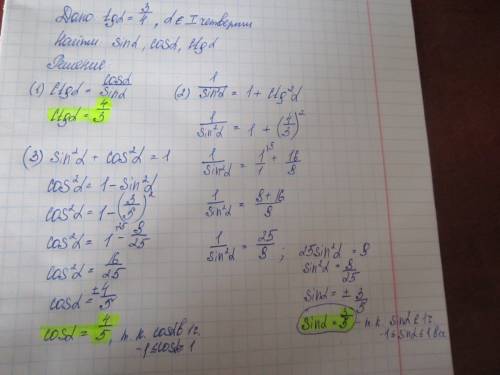 Дано tgα = 3/4, α ∈ I четверти
Найти sinα, cosα, ctgα
Решение
(1) ctgα = cosα/sinα
ctgα = 4/3
(2) 1/sin²α = 1 + ctg²α
1/sin²α = 1 + (4/3)²
1/sin²α = 1/1 + 16/9
1/sin²α = 9+16/9
1/sin²α = 25/9 ; 25sin²α = 9
sin²α = 9/25
sinα = ± 3/5
sinα = 3/5 - т.к. sinα в 1ч.
-1 ≤ sinα ≤ 1
(3) sin²α + cos²α = 1
cos²α = 1 - sin²α
cos²α = 1 - (3/5)²
cos²α = 1 - 9/25
cos²α = 16/25
cosα = ±4/5
cosα = 4/5, т.к. cosα в 1ч.
-1 ≤ cosα ≤ 1